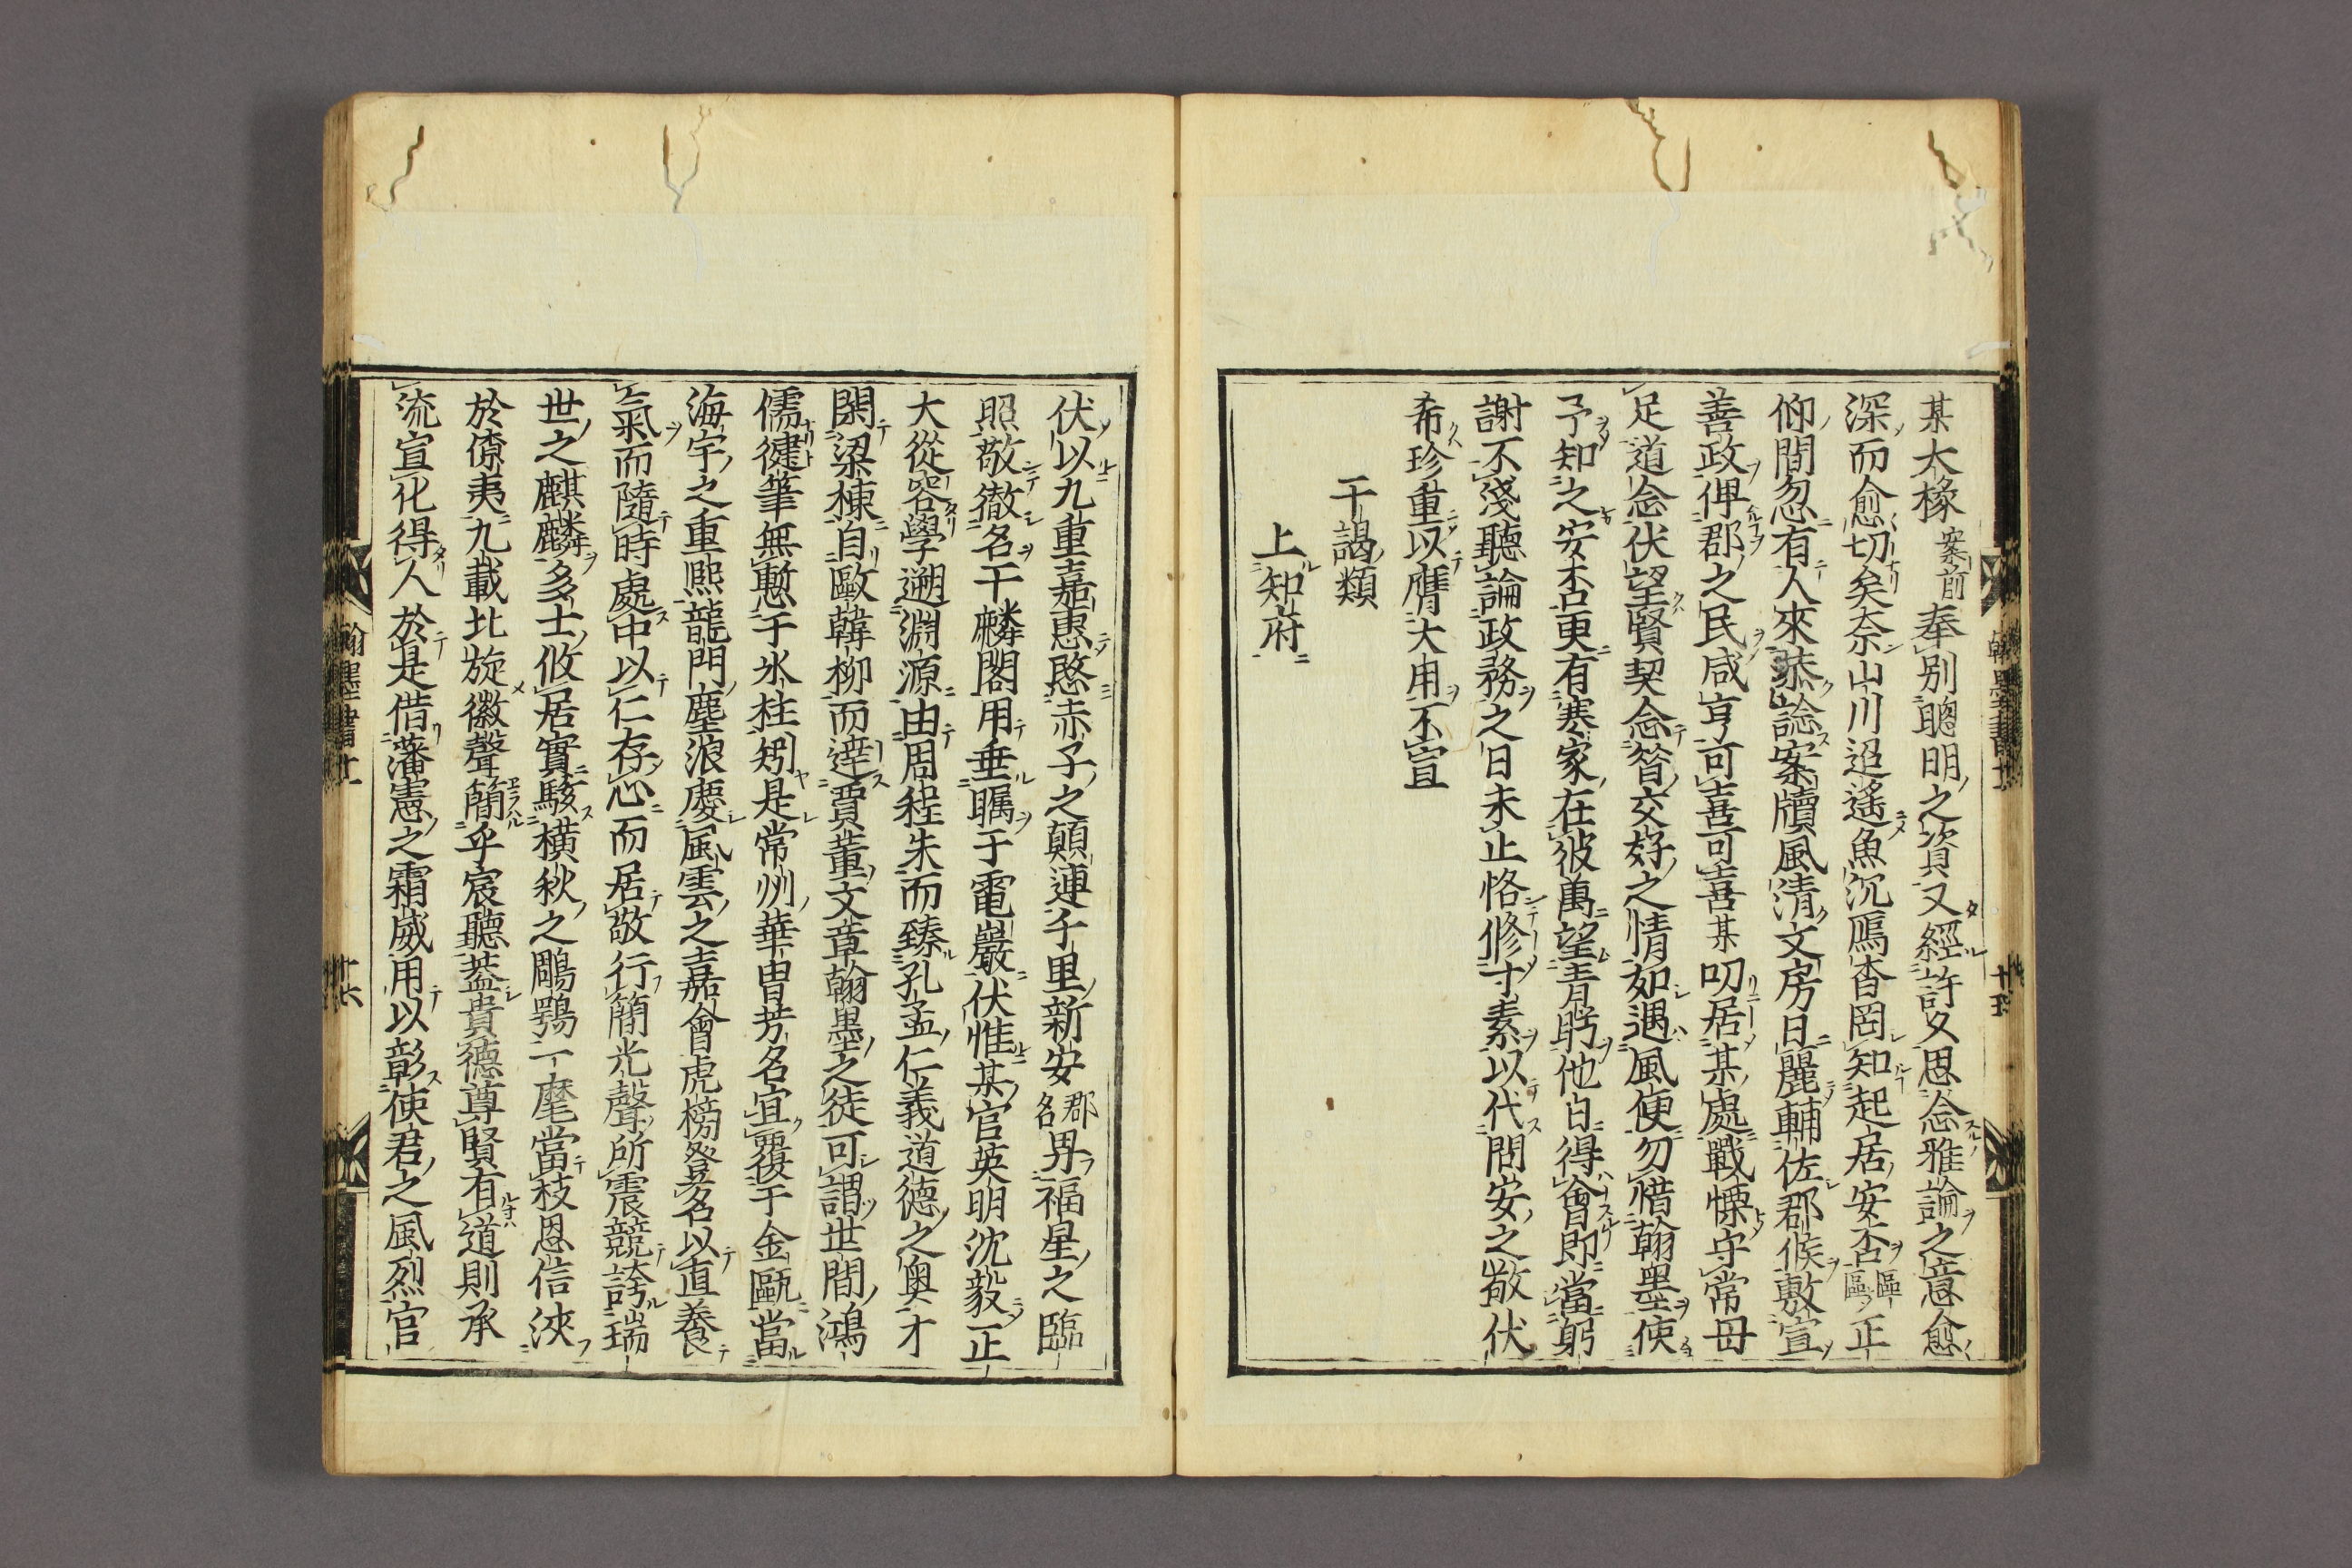 某大椽案前奉別聰明之資又經許久思念雅論之意愈
深而愈切矣奈山川迢遙魚沉鴈杳罔知起居安否區區正
仰間忽有人來恭諗案牘風清文房日麗輔佐郡候敷宣
善政俾郡之民咸亨可喜可喜某叨居某處戰慄守常毋
足道念伏望賢契念昝交好之情如遇風便勿惜翰墨使
予知之安否更有寒家在彼萬望青眄他日得會即當躬
謝不淺聽論政務之日未止恪修寸素以代問安之敬伏
希珍重以膺大用不宣
干謁類
上知府
伏以九重嘉惠愍赤子之顛連千里新安郡名畀福星之臨
照敬徹名干麟閣用垂矚于電巖伏惟某官英明沈毅正
大從容學遡淵源由周程朱而臻孔孟仁義道德之奧才
閎梁棟自歐韓柳而達賈董文章翰墨之徒可謂世間鴻
儒健筆無慙于氷柱矧是常州華冑芳名宜覆于金甌當
海宇之重熙龍門塵浪慶風雲之嘉會虎榜登名以直養
氣而隨時處中以仁存心而居敬行簡光聲所震競誇瑞
世之麒麟多士攸居實駭橫秋之鵰鶚一麾當枝恩信浹
於僚夷九載北旋徽聲簡乎宸聽葢貴德尊賢有道則承
流宣化得人於是借藩憲之霜威用以彰使君之風烈官
翰墨書十一
十六